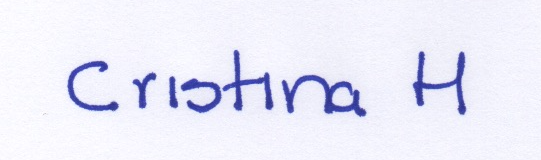 Cristina H